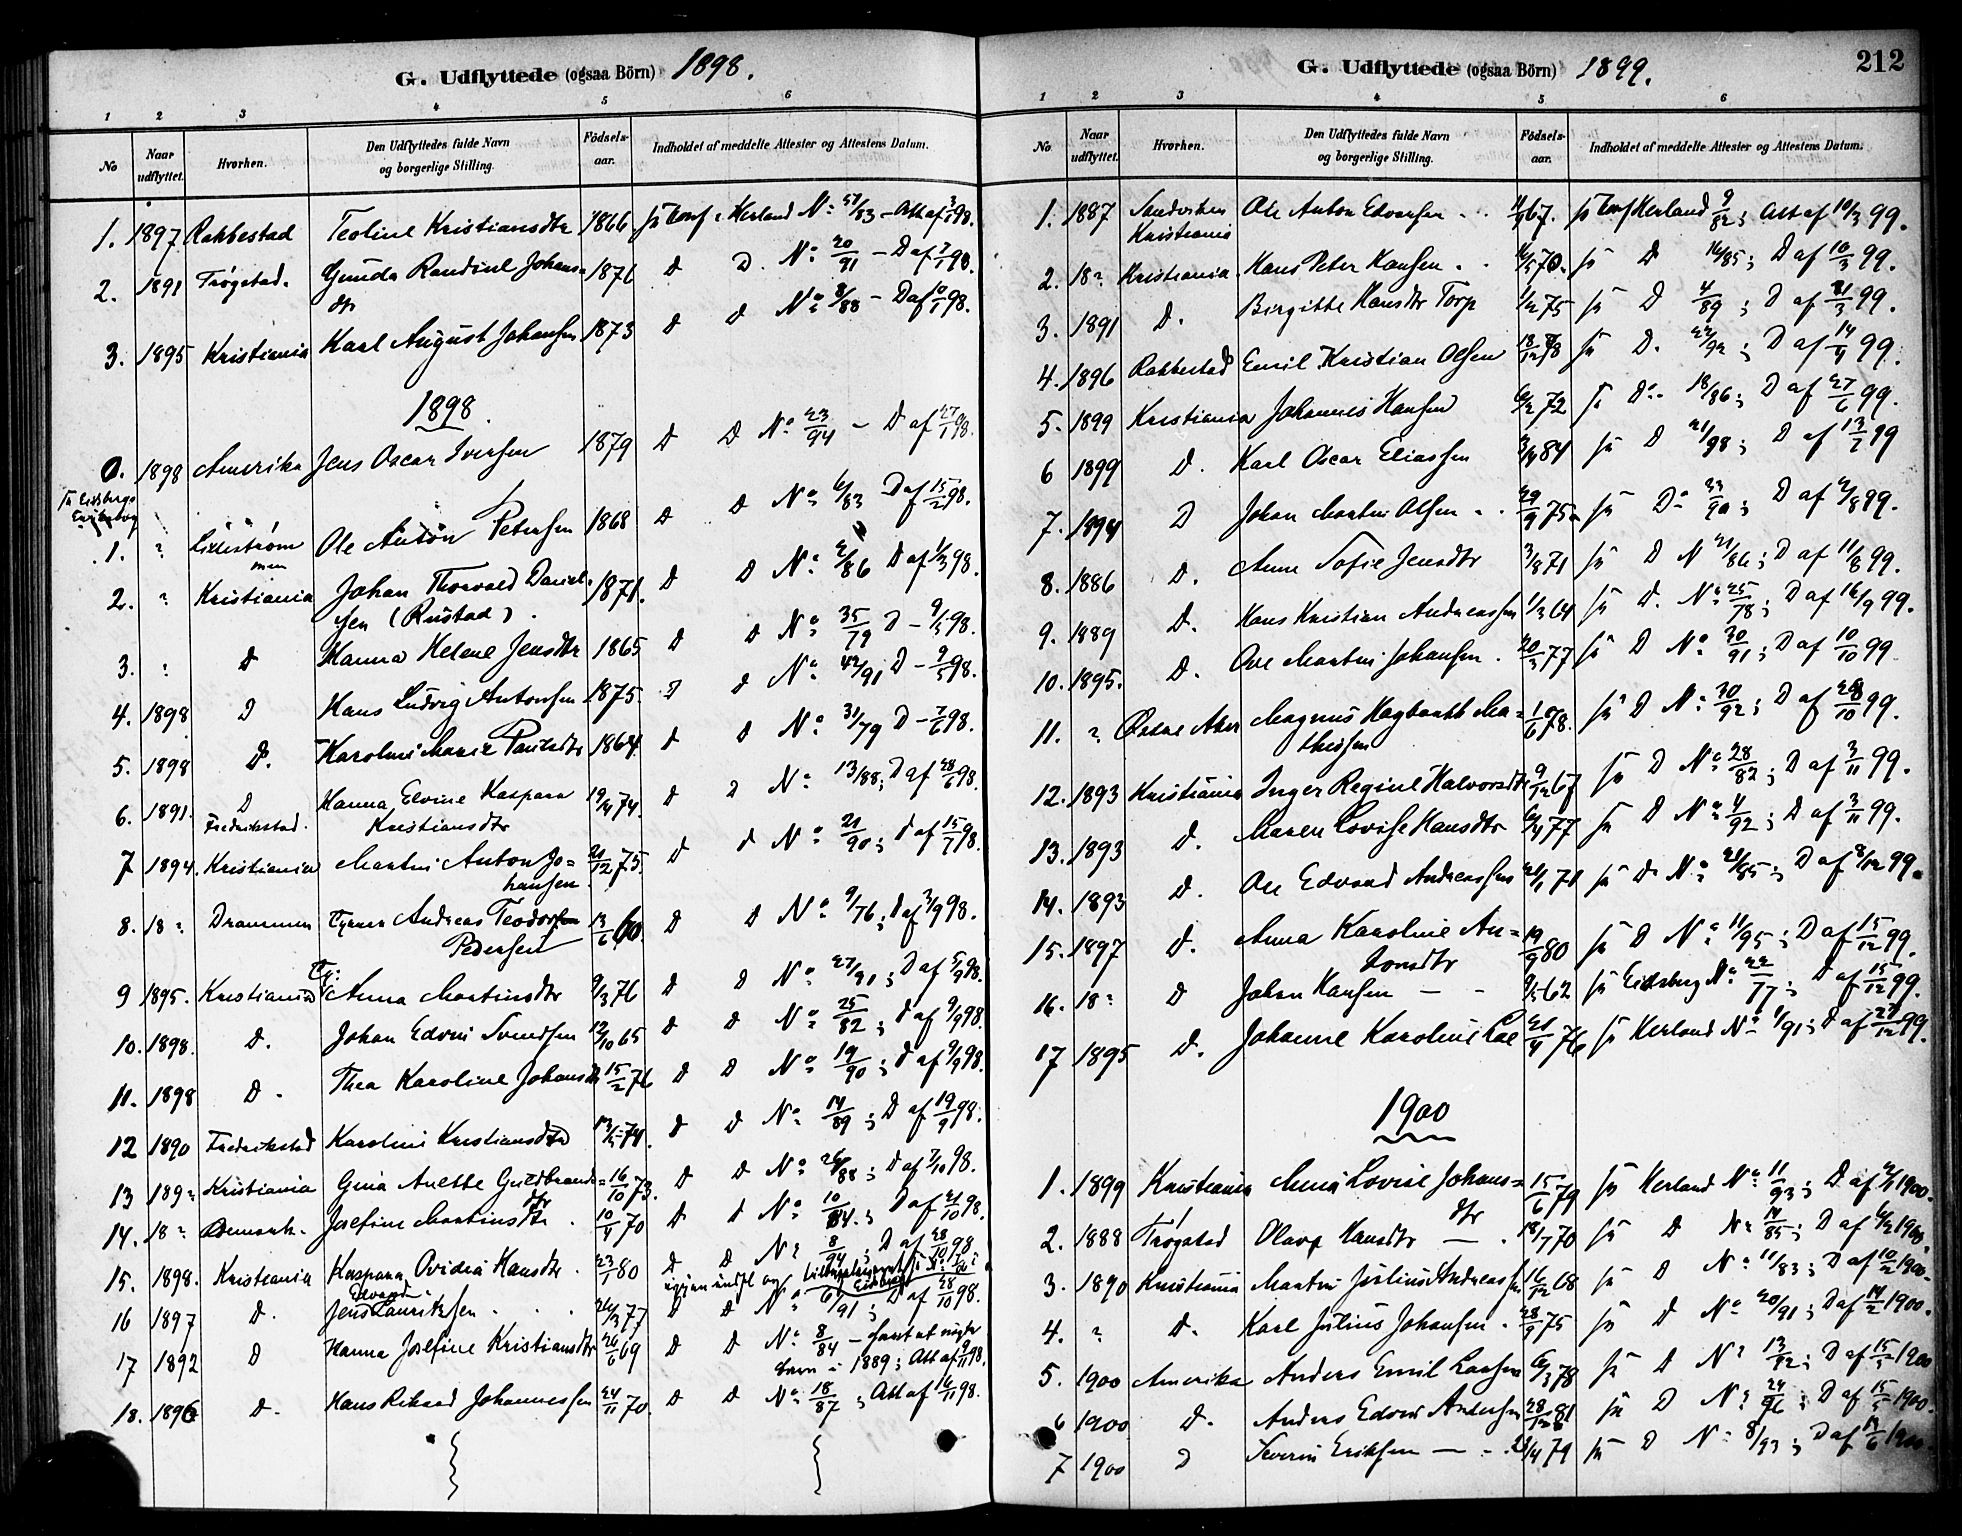 G. Udflyttede (ogsaa Börn) 1898.
1 2 3 4 5 6
No Naar udflyttet. Hvorhen. Den Udflyttedes fulde Navn og borgerlige Stilling. Födsels-aar. Indholdet af meddelte Attester og Attestens Datum.
1. 1897 Rakkestad Teoline Kristiansdtr 1866 Herland No 51/83 – Att af 98.
2. 1891 Trøgstad. Gunda Randine Johans= 1876 D D. No 20/91 – D af 98.
dtr
3. 1895 Kristiania Karl August Johansen 1873 D D No 3/88 – D af 98.
1898.
0. 1898 Amerika Jens Oscar Iversen 1879 D D No 23/94 – D af 27/1 98.
1. " Lillestrøm Ole Anton Petersen 1868 D D No 6/83 D af 15/2 98.
2. " Kristiania Johan Thorvald Daniel- 1871. D D No 2/86 D af 1/3 98.
sen (Rustad).
3. " D Hanna Helene Jensdtr 1865 D D No 35/79 D – 9/5 98.
4. 1898 D Hans Ludvig Antonsen 1875. D D No 42/91 D – 9/5 98.
5. 1898 D. Karoline Marie Paulsdtr 1864. D D No 31/79 D – 7/6 98.
6. 1891. D Hanna Elvine Kaspara 19/4 74. D D No 13/88; D af 28/6 98.
Fredrikstad. Kristiansdtr
7 1894. Kristiania Martin Anton Jo= 21/12 75. D D No 21/90; D af 15/7 98.
hansen
8. 18 " Drammen Andreas Teodor 13/6 60. D D No 9/76; D af 3/9 98.
Pedersen
9 1895. Kristiania Anna Martinsdtr 9/3 76 D D No 27/91; D af 5/9 98.
10. 1898. D. Johan Edvin Svendsen 12/10 65 D D No 25/82; D af 9/9 98.
11. 1898 D. Thea Karoline Johansdtr 15/2 76 D D No 19/90; D af 9/9 98.
12 1890 Fredrikstad Karoline Kristiansdtr 74. D D No 14/89; D af 19/9 98.
13 189" Kristiania Gina Anette Guldbrands= 16/10 73. D D No 26/88; D af 7/10 98.
dtr
14. 18 " Josefine Martinsdtr 10/4 70 D D No 10/84.; D af 21/10 98.
15. 1898. Kristiania Kaspara Ovidia Hansdtr. 23/1 80 D D No 8/94; D af 28/10 98
16 1897 D. Jens Edvard Lauritzsen 26/3 77 D D No 6/91; D af 28/10 98.
17 1892 D Hanna Josefine Kristiansdtr 26/6 69 D D No 8/84 –
barn i 1889; Att af 9/11 98.
18. 1896 D. Hans Rikard Johannessen 24/11 70. D D No 18/87; Att af 16/11 98.
212
G. Udflyttede (ogsaa Börn) 1899.
1 2 3 4 5 6
No Naar udflyttet. Hvorhen. Den Udflyttedes fulde Navn og borgerlige Stilling. Födsels-aar. Indholdet af meddelte Attester og Attestens Datum.
1. 1887 Sandviken Ole Anton Edvardsen 67. Herland 9/82; Att af 10/3 99.
Kristiania
2. 18 " Kristiania. Hans Peter Hansen. 70. D 16/85; D af 16/3 99.
3. 1891 D. Birgitte Hansdtr Torp 1/12 75 D 4/89; D af 21/3 99.
4. 1896 Rakkestad Emil Kristian Olsen 18/12 78 D. 22/92; D af 14/4 99.
5. 1899 Kristiania Johannes Hansen 6/2 72 Do 18/86; D af 27/6 99.
6 1899 D. Karl Oscar Eliassen 84 D 21/98; D af 13/7 99
7. 1894 D Johan Martin Olsen 29/9 75. Do 33/90; D af 2/8 99.
8. 1886 D. Anne Sofie Jensdtr 3/8 71 D No 21/86; D af 11/8 99.
9. 1889 D. Hans Kristian Andreassen 1/3 64 D. No 25/78; D af 16/9 99.
10. 1895. D. Ole Martin Johansen. 20/3 77 D No 30/91; D af 10/10 99
11. " Østre Aker Magnus Hagbarth Ma= 10/6 78. D No 30/92; D af 28/10 99.
thisen
12. 1893 Kristiania Inger Regine Halvorsdtr 9/12 67 D No 28/82; D af 3/11 99.
13. 1893 D. Maren Lovise Hansdtr 6/4 77 D No 4/92; D af 3/11 99.
14. 1893 D. Ole Edvard Andreassen 21/1 71 D No 21/85; D af 8/12 99.
15. 1897 D. Anna Karoline An= 19/9 80 D No 11/95; D af 15/12 99.
tonsdtr
16. 18 " D Johan Hansen – – 9/5 62 Eidsberg No 22/77; D af 15/12 99.
17 1895 D. Johanne Karoline Lae 21/4 76 Herland No 1/91; D af 27/12 99.
1900
1. 1899 Kristiania Anna Lovise Johans= 15/6 79 Herland No 11/93; D af 2/1 1900.
dtr
2. 1888 Trøgstad Olava Hansdtr – 18/7 70 D No 14/85; D af 6/2 1900.
3. 1890 Kristiania Martin Julius Andreassen 16/12 68 D No 11/83; D af 10/2 1900.
4. " D. Karl Julius Johansen. 28/9 75 D No 20/91; D af 14/2 1900.
5. 1900 Amerika Anders Emil Larsen 6/3 78 D No 13/92; D af 15/5 1900
6 1900 D. Anders Edvin Andersen 28/12 81 D No 24/96; D af 15/5 1900.
7 1900 D Severin Eriksen – – 79 D No 8/93; D af 14/6 1900